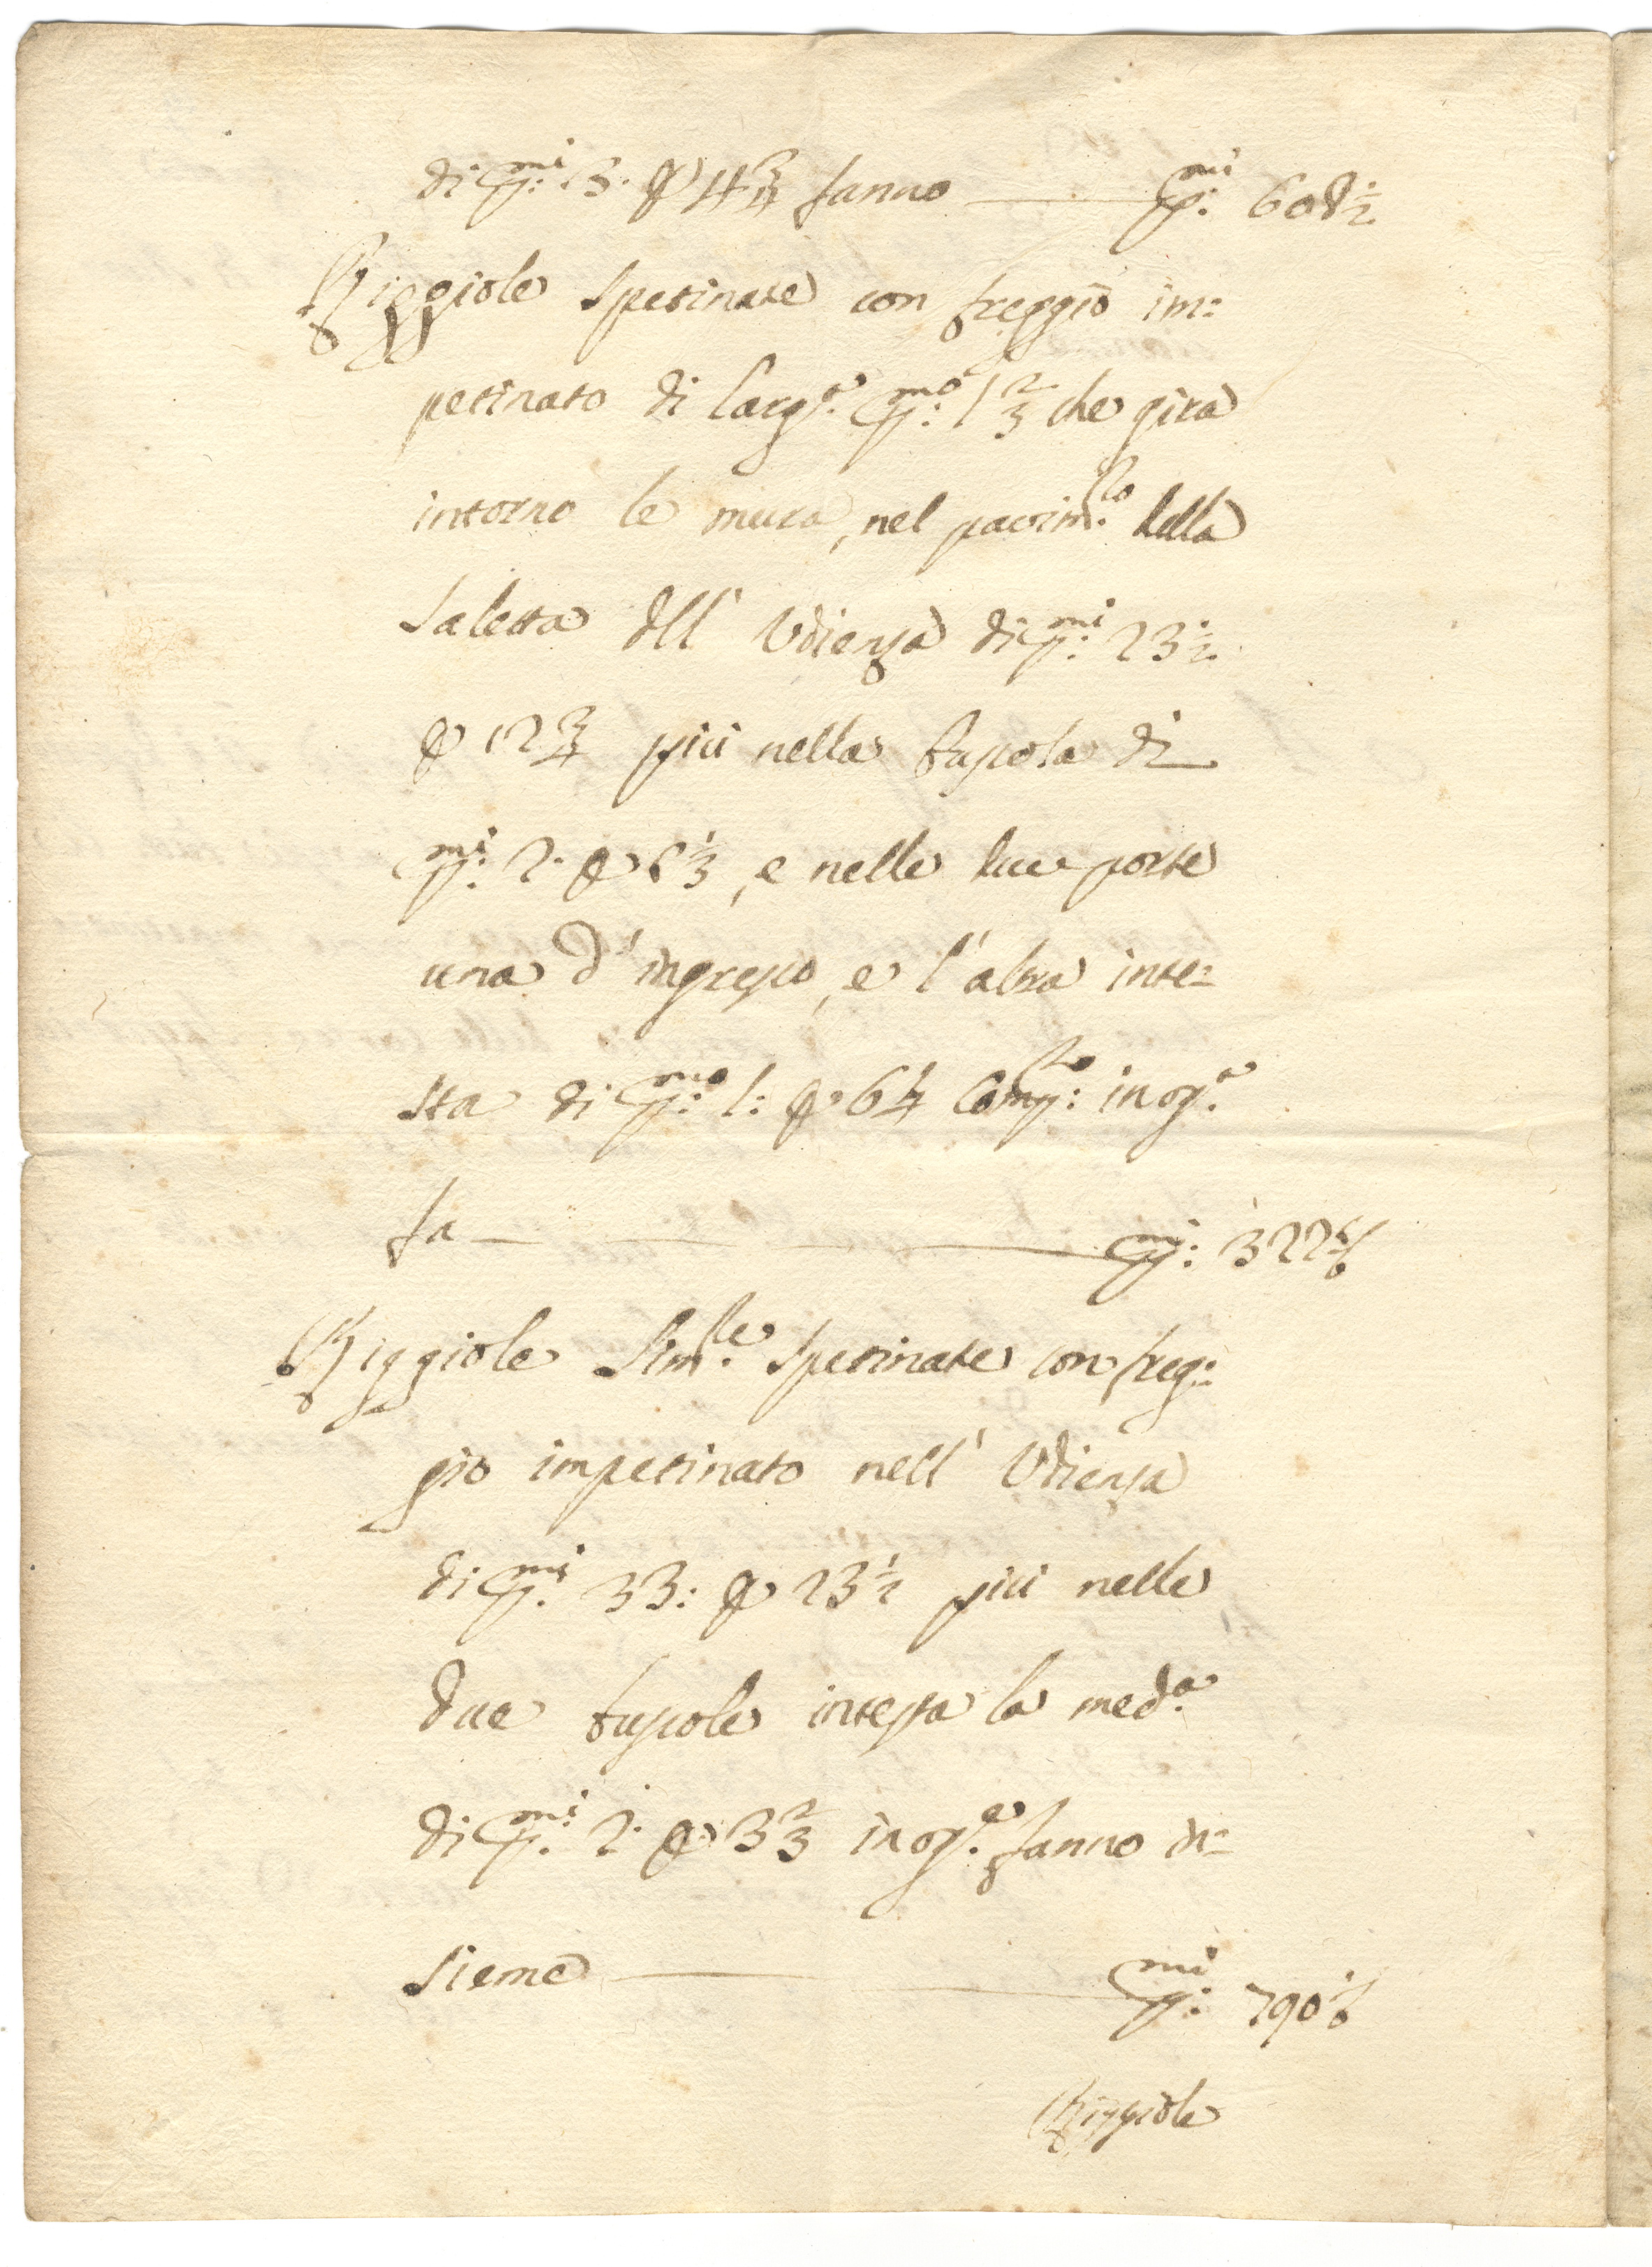 di p:mi 3. p 4 3/4 fanno — p:mi 608 1/2
Riggiole spetinate con freggio im=
petinato di larg.a p:mo 1 2/3 che gira
intorno le mura, nel pavim.to della
saletta dll' Udienza di p:mi 23 1/2
p 12 3/4 più nella bussola di
p:mi 2. p 6 1/3, e nelle due porte
una d' ingresso, e l' altra inte=
sta di p:mo 1: p 6 1/4 Comp:to in og.a
fa — p:mi 322 5/6
Riggiole Sim.le spetinate con freg=
gio impetinato nell' Udienza
di p:mi 33: p 23 1/2 più nelle
due bussole intessa la med.a
di p:mi 2. p 3 2/3 in og.a fanno in=
sieme — p:mi 790 1/6
Riggiole